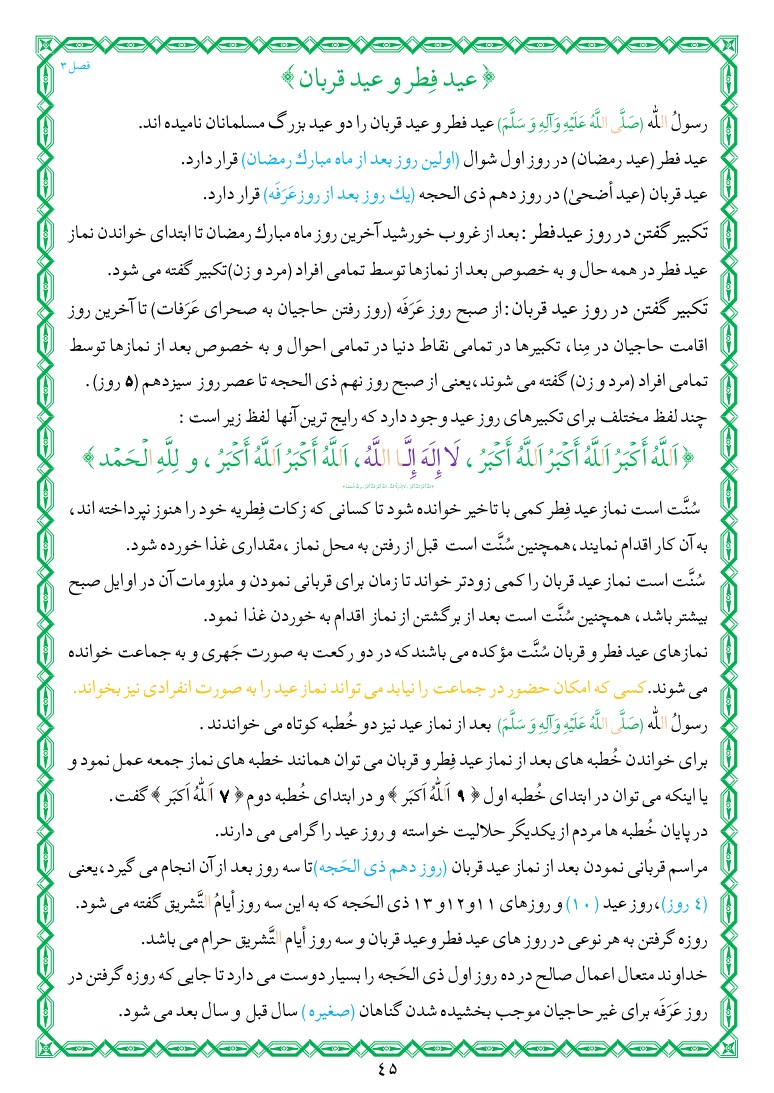 فصل ۳
﴿ عید فِطر و عید قربان ﴾
رسولُ الله (صَلَّی اللَّهُ عَلَیْهِ وَآلِهِ وَ سَلَّمَ) عید فطر و عید قربان را دو عید بزرگ مسلمانان نامیده اند.
عید فطر (عید رمضان) در روز اول شوال (اولین روز بعد از ماه مبارك رمضان) قرار دارد.
عید قربان (عید أضحیٰ) در روز دهم ذی الحجه (یك روز بعد از روز عَرَفَه) قرار دارد.
تَکبیر گفتن در روز عیدفطر : بعد از غروب خورشید آخرین روز ماه مبارك رمضان تا ابتدای خواندن نماز
عید فطر در همه حال و به خصوص بعد از نمازها توسط تمامی افراد (مرد و زن)تکبیر گفته می شود.
تَکبیر گفتن در روز عید قربان: از صبح روز عَرَفَه (روز رفتن حاجیان به صحرای عَرَفات) تا آخرین روز
اقامت حاجیان در مِنا، تکبیرها در تمامی نقاط دنیا در تمامی احوال و به خصوص بعد از نمازها توسط
تمامی افراد (مرد و زن) گفته می شوند،یعنی از صبح روز نهم ذی الحجه تا عصر روز سیزدهم (۵ روز) .
چند لفظ مختلف برای تکبیرهای روز عید وجود دارد که رایج ترین آنها لفظ زیر است :
﴿ اَللَّهُ أَکْبَرُ اَللَّهُ أَکْبَرُ اَللَّهُ أَکْبَرُ ، لَا إِلَهَ إِلَّا اللَّهُ، اَللَّهُ أَکْبَرُ اَللَّهُ أَکْبَرُ ، و لِلَّهِ الْحَمْد ﴾
سُنَّت است نماز عید فِطر کمی با تاخیر خوانده شود تا کسانی که زکات فِطریه خود را هنوز نپرداخته اند،
به آن کار اقدام نمایند،همچنین سُنَّت است قبل از رفتن به محل نماز ،مقداری غذا خورده شود.
سُنَّت است نماز عید قربان را کمی زودتر خواند تا زمان برای قربانی نمودن و ملزومات آن در اوایل صبح
بیشتر باشد، همچنین سُنَّت است بعد از برگشتن از نماز اقدام به خوردن غذا نمود.
نمازهای عید فطر و قربان سُنَّت مؤکده می باشندکه در دو رکعت به صورت جَهری و به جماعت خوانده
می شوند.کسی که امکان حضور در جماعت را نیابد می تواند نماز عید را به صورت انفرادی نیز بخواند.
رسولُ الله (صَلَّی اللَّهُ عَلَیْهِ وَآلِهِ وَ سَلَّمَ) بعد از نماز عید نیز دو خُطبه کوتاه می خواندند .
برای خواندن خُطبه های بعد از نماز عید فِطر و قربان می توان همانند خطبه های نماز جمعه عمل نمود و
یا اینکه می توان در ابتدای خُطبه اول ﴿ ۹ اَللَّهُ اَکبَر ﴾ و در ابتدای خُطبه دوم ﴿ ۷ اَللَّهُ اَکبَر ﴾ گفت.
در پایان خُطبه ها مردم از یکدیگر حلالیت خواسته و روز عید را گرامی می دارند.
مراسم قربانی نمودن بعد از نماز عید قربان (روز دهم ذی الحَجه)تا سه روز بعد از آن انجام می گیرد،یعنی
(٤ روز)،روز عید (۱۰) و روزهای ۱۱و۱۲و ۱۳ ذی الحَجه که به این سه روز أیامُ التَّشریق گفته می شود.
روزه گرفتن به هر نوعی در روز های عید فطر و عید قربان و سه روز أیام التَّشریق حرام می باشد.
خداوند متعال اعمال صالح در ده روز اول ذی الحَجه را بسیار دوست می دارد تا جایی که روزه گرفتن در
روز عَرَفَه برای غیر حاجیان موجب بخشیده شدن گناهان (صغیره) سال قبل و سال بعد می شود.
٤۵